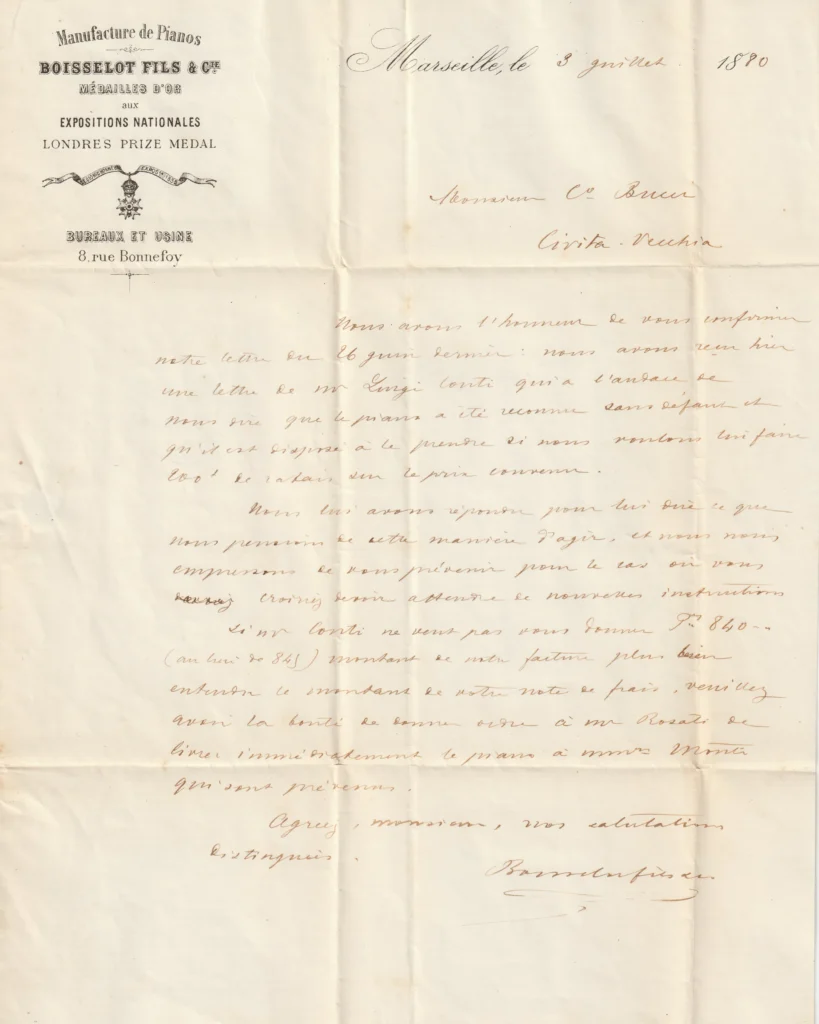 Manufacture de Pianos
BOISSELOT FILS & Cie
MÉDAILLES D'OR
aux
EXPOSITIONS NATIONALES
LONDRES PRIZE MEDAL
BUREAUX ET USINE
8, rue Bonnefoy
Marseille, le 3 juillet 1880
Monsieur Co Bucci
Civita-Vecchia
Nous avons l'honneur de vous confirmer
notre lettre du 26 juin dernier : nous avons reçu hier
une lettre de mr Luigi Conti qui a l'audace de
nous dire que le piano a été reconnu sans défaut et
qu'il est disposé à le prendre si nous voulons lui faire
200f de rabais sur le prix convenu.
Nous lui avons répondu pour lui dire ce que
nous pensions de cette manière d'agir, et nous nous
empressons de vous prévenir pour le cas où vous
croiriez devoir attendre de nouvelles instructions
Si mr Conti ne veut pas vous donner Frs 840--
(au lieu de 845) montant de notre facture plus bien
entendu le montant de votre note de frais, veuillez
avoir la bonté de donner ordre à mr Rosati de
livrer immédiatement le piano à
qui sont prévenus.
Agréez, monsieur, nos salutations
distinguées.
Boisselot fils & Cie